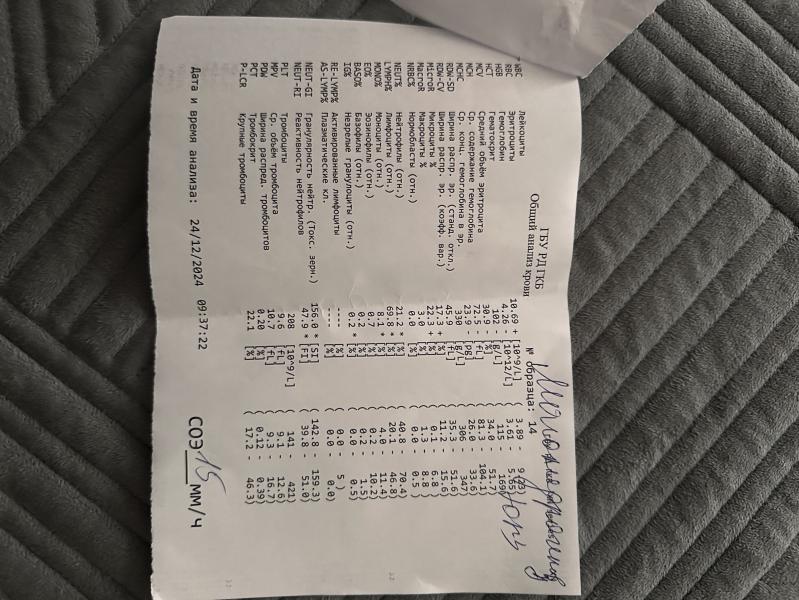 ГБУ РД ГКБ
Общий анализ крови
№ образца: 14
WBC Лейкоциты 10.69 + [10^9/L] ( 3.89 -
RBC Эритроциты 4.26 [10^12/L] ( 3.61 - 5.65)
HGB Гемоглобин 102 - [g/L] ( 115 - 169)
HCT Гематокрит 30.9 - [%] ( 34.6 - 51.7)
MCV Средний объём эритроцита 72.5 - [fL] ( 81.3 - 104.1)
MCH Ср. содержание гемоглобина 23.9 - [pg] ( 26.0 - 33.6)
MCHC Ср. конц. гемоглобина в эр. 330 [g/L] ( 306 - 347)
RDW-SD Ширина распр. эр. (станд. откл.) 45.9 [fL] ( 35.7 - 51.6)
RDW-CV Ширина распр. эр. (коэфф. вар.) 17.3 + [%] ( 11.2 - 15.6)
MicroR Микроциты % 22.3 + [%] ( 0.3 - 6.8)
MacroR Макроциты % 3.0 [%] ( 1.3 - 8.8)
NRBC% Нормобласты (отн.) 0.0 [%] ( 0.0 - 0.5)
NEUT% Нейтрофилы (отн.) 21.2 * [%] ( 40.8 - 70.4)
LYMPH% Лимфоциты (отн.) 69.8 * [%] ( 20.1 - 46.8)
MONO% Моноциты (отн.) * [%] ( 4.0 - 11.4)
EO% Эозинофилы (отн.) 0.7 [%] ( 0.2 - 10.2)
BASO% Базофилы (отн.) 0.2 [%] ( 0.1 - 1.5)
IG% Незрелые гранулоциты (отн.) 0.2 * [%] ( 0.0 - 0.5)
RE-LYMP% Активированные лимфоциты ---- [%] ( 0.0 - 5 )
AS-LYMP% Плазматические кл. ---- [%] ( 0.0 - 0.0)
NEUT-GI Гранулярность нейтр. (Токс. зерн.) 156.0 * [SI] ( 142.8 - 159.3)
NEUT-RI Реактивность нейтрофилов 47.9 * [FI] ( 39.8 - 51.0)
PLT Тромбоциты 208 [10^9/L] ( 141 - 421)
MPV Ср. объём тромбоцита 9.6 [fL] ( 9.1 - 12.6)
PDW Ширина распред. тромбоцитов 10.7 [fL] ( 9.3 - 16.7)
PCT Тромбокрит 0.20 [%] ( 0.12 - 0.39)
P-LCR Крупные тромбоциты 22.1 [%] ( 17.2 - 46.3)
Дата и время анализа: 24/12/2024 09:37:22
СОЭ 15 мм/ч